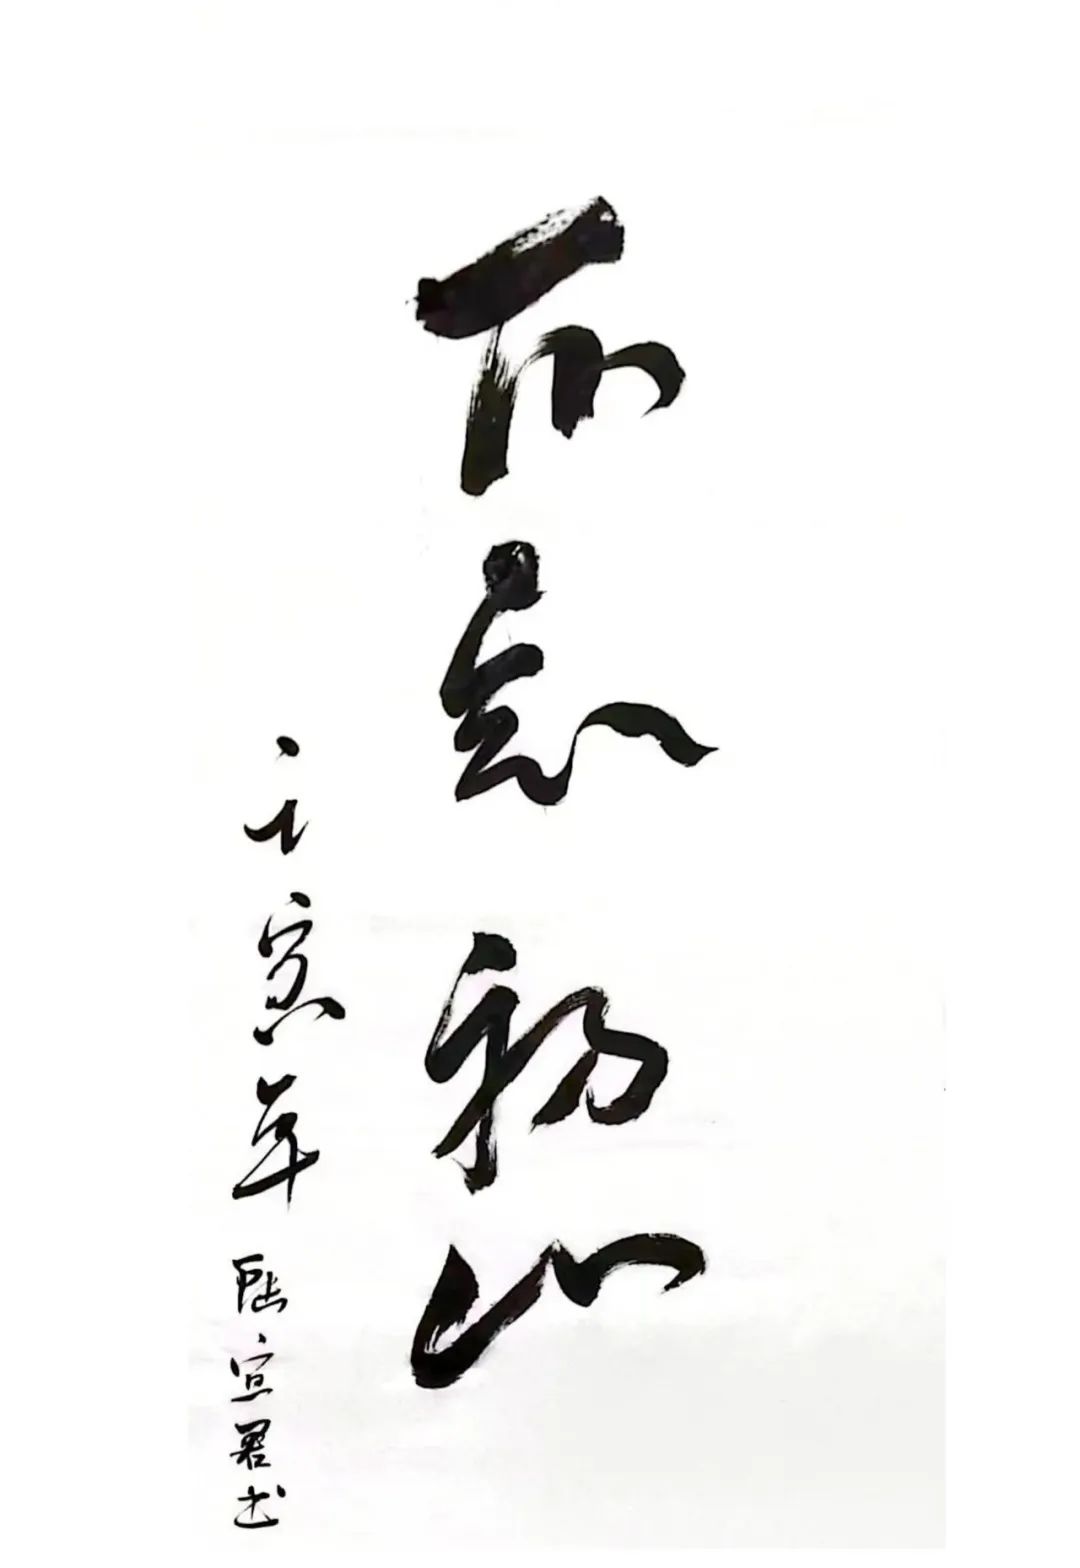 不忘初心
壬寅年 陆宣君书